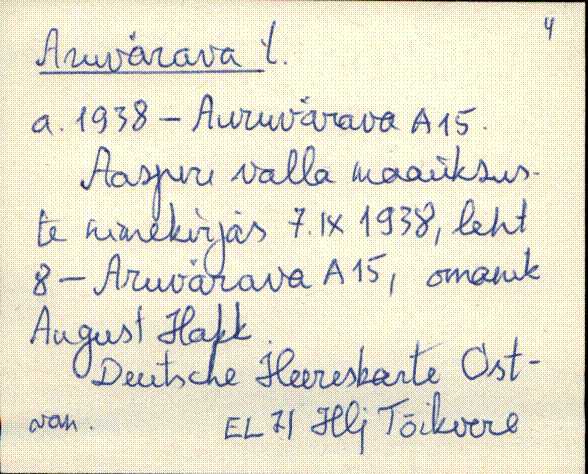 4
Aruvärava t.
a. 1938 – Auruvärava A15.
Aaspere valla maaüksus-
te nimekirjas 7.IX 1938, leht
8 – Aruvärava A15, omanik
August Hakk.
Deutsche Heereskarte Ost-
van. EL71 Hlj Tõikvere